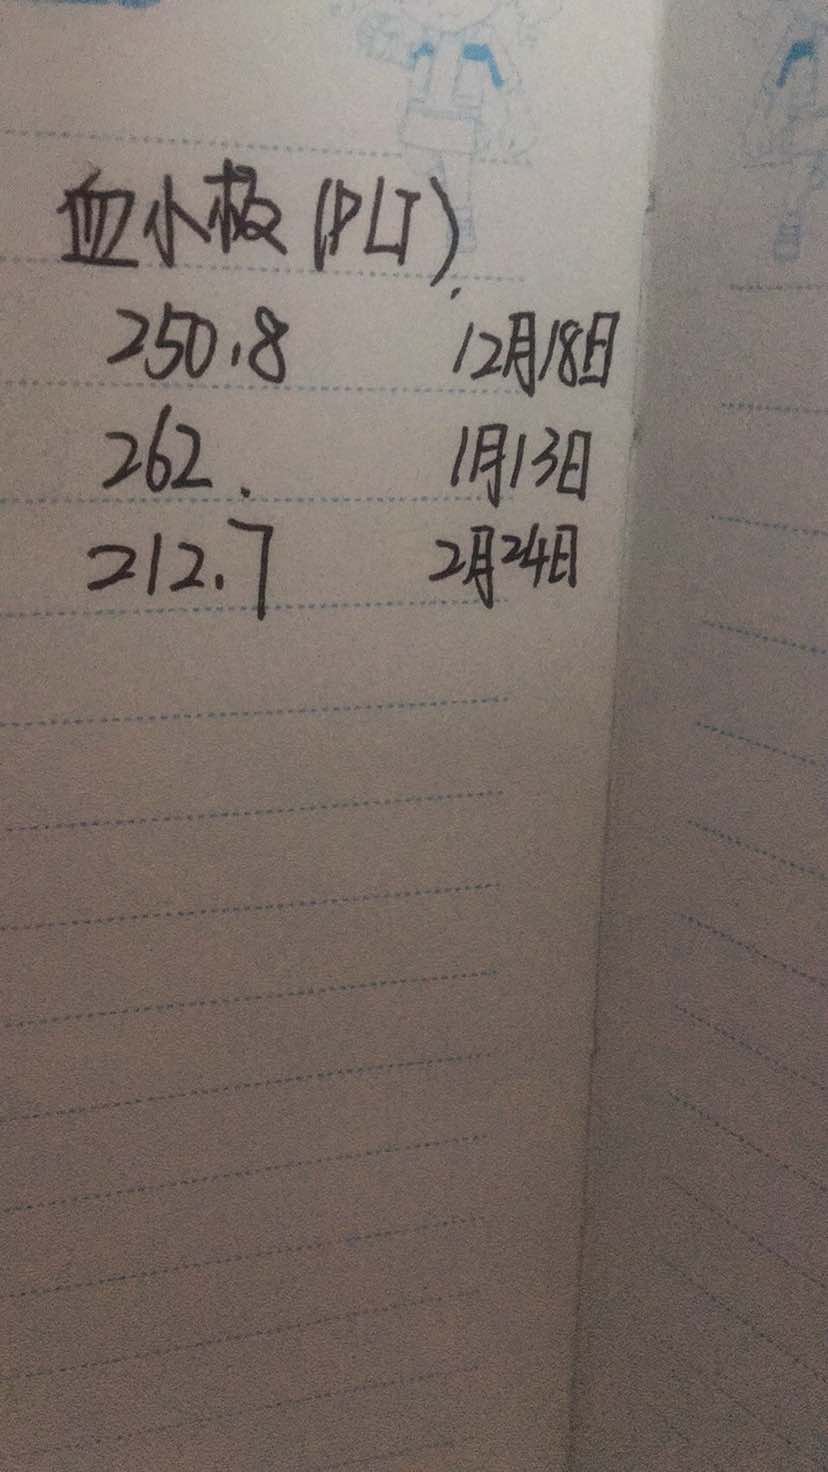 血小板(PLT)
250.8 12月18日
262. 1月13日
212.7 2月24日